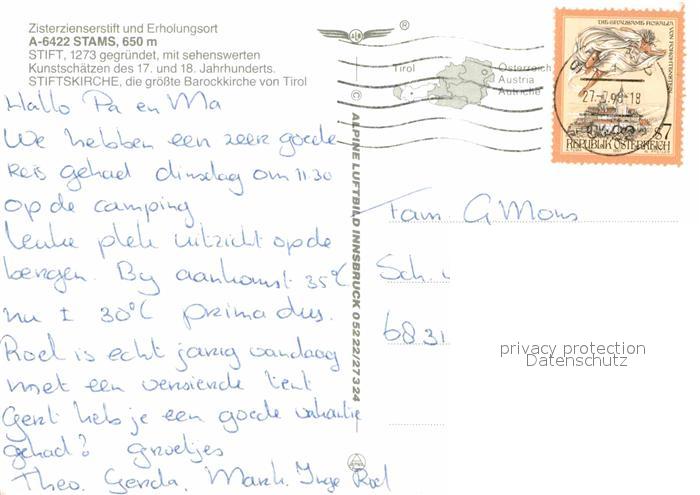 Zisterzienserstift und Erholungsort
A-6422 STAMS, 650 m
STIFT, 1273 gegründet, mit sehenswerten
Kunstschätzen des 17. und 18. Jahrhunderts.
STIFTSKIRCHE, die größte Barockkirche von Tirol
Hallo Pa en Ma
We hebben een zeer goede
reis gehad dinsdag om 11.30
op de camping
leuke plek uitzicht op de
bergen. By aankomst 35°C
nu ± 30°C prima dus.
Roel is echt jarig vandaag
met een versierde tent
Gert heb je een goede vakantie
gehad? groetjes
Theo. Gerda. Mark. Inge Roel
®
Tirol
Österreich
Austria
Autriche
© ALPINE LUFTBILD INNSBRUCK 05222/27324
DIE GRAUSAME ROSALIA
VON FORCHTENSTEIN
27-7.98-18
S7
REPUBLIK ÖSTERREICH
Fam. G Mons
Sch.
6831
privacy protection
Datenschutz